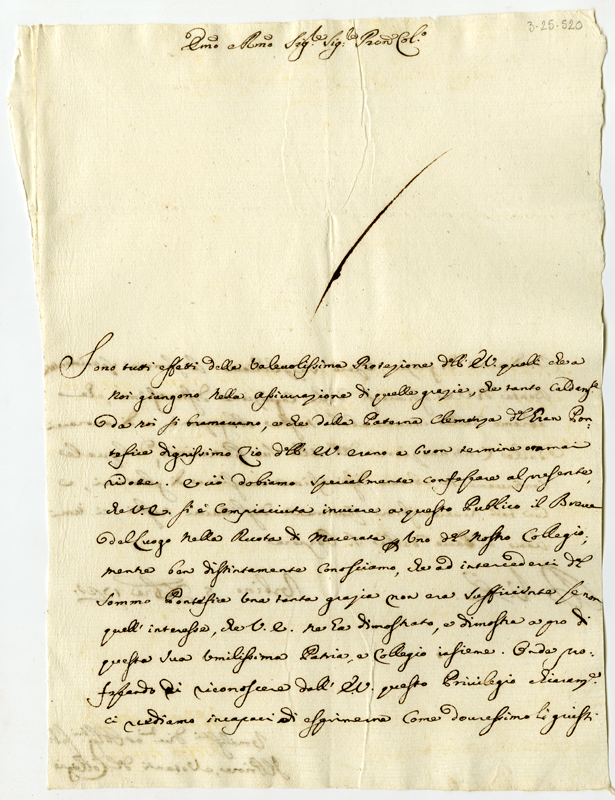 3-25-520
Emo e Rmo Sig.re Sig.re Pron Col.o
Sono tutti effetti della Valevolissima Protezione dell' E.V. quelli che a
Noi giungono nella assicurazione di quelle grazie, che tanto caldam.te
da noi si bramavano, e che dalla Paterna Clemenza del Gran Pon-
tefice dignissimo Zio dell' E.V. erano a buon termine oramai
ridotte. E ciò dobiamo specialmente confessare al presente,
che V.E. si è compiaciuta inviare a questo Publico il Breve
del Luogo nella Ruota di Macerata p Uno del nostro Collegio;
mentre ben distintamente conosciamo, che ad intercederci dal
Sommo Pontefice una tanta grazia non era sufficiente se non
quell' interesse, che V.E. ne ha dimostrato, e dimostra a pro di
questa sua Umilissima Patria, e Collegio insieme. Onde pro-
fessando di riconoscere dall' E.V. questo Privilegio chiaram.te
ci vediamo incapaci di esprimerne come dovressimo li giusti